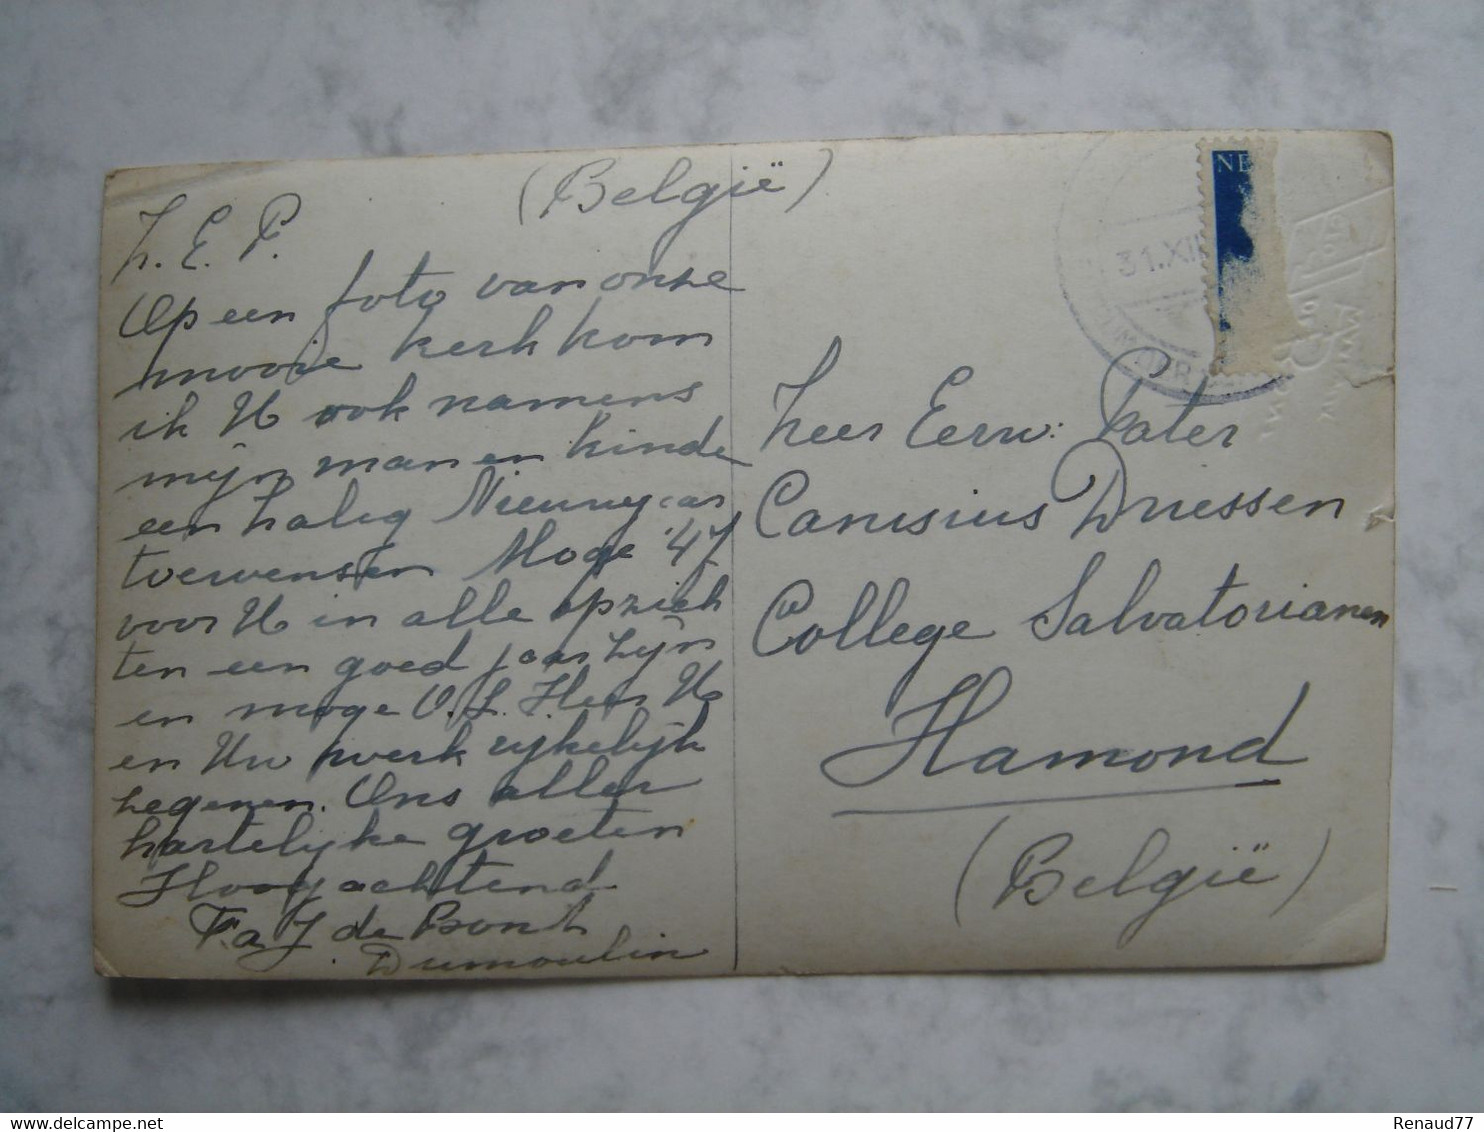 (België)
Z. E. P.
Op een foto van onze
mooie kerk kom
ik U ook namens
mijn man en kinde
een zalig Nieuwjaar
toewensen Moge '47
voor U in alle opzich
ten een goed jaar zijn
en moge O. L. Heer U
en Uw werk rijkelijk
zegenen. Ons aller
hartelijke groeten
Hoogachtend
Fa J. de Bont
Dumoulin
NE
31.XII
Zeer Eerw: Pater
Canisius Driessen
College Salvatorianen
Hamond
(België)
Renaud77